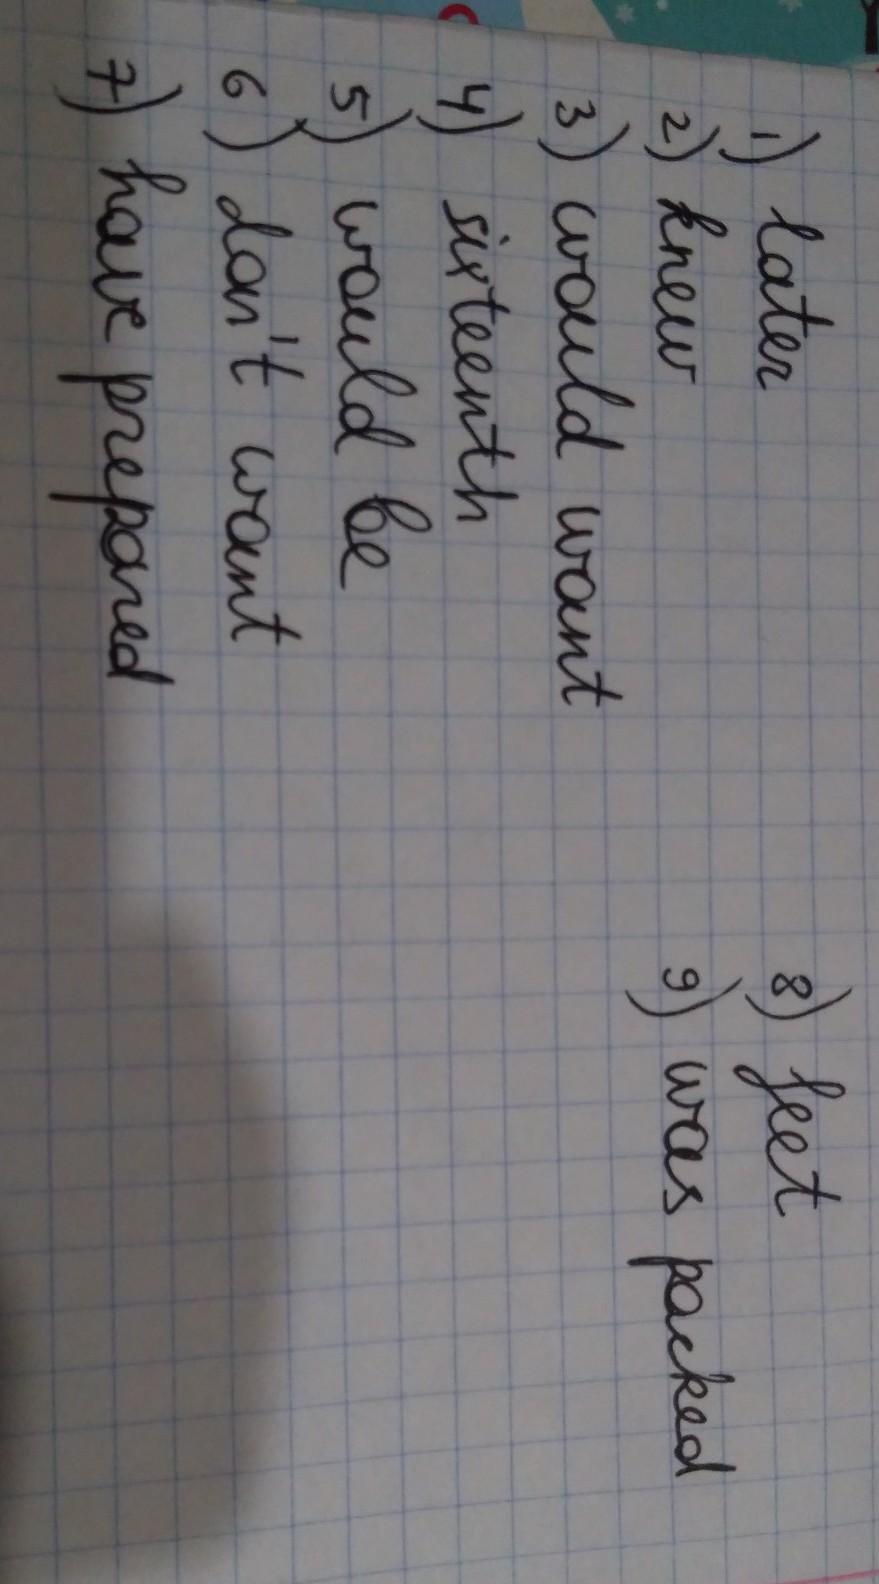 1) later
2) knew
3) would want
4) sixteenth
5) would be
6) don't want
7) have prepared
8) feet
9) was packed